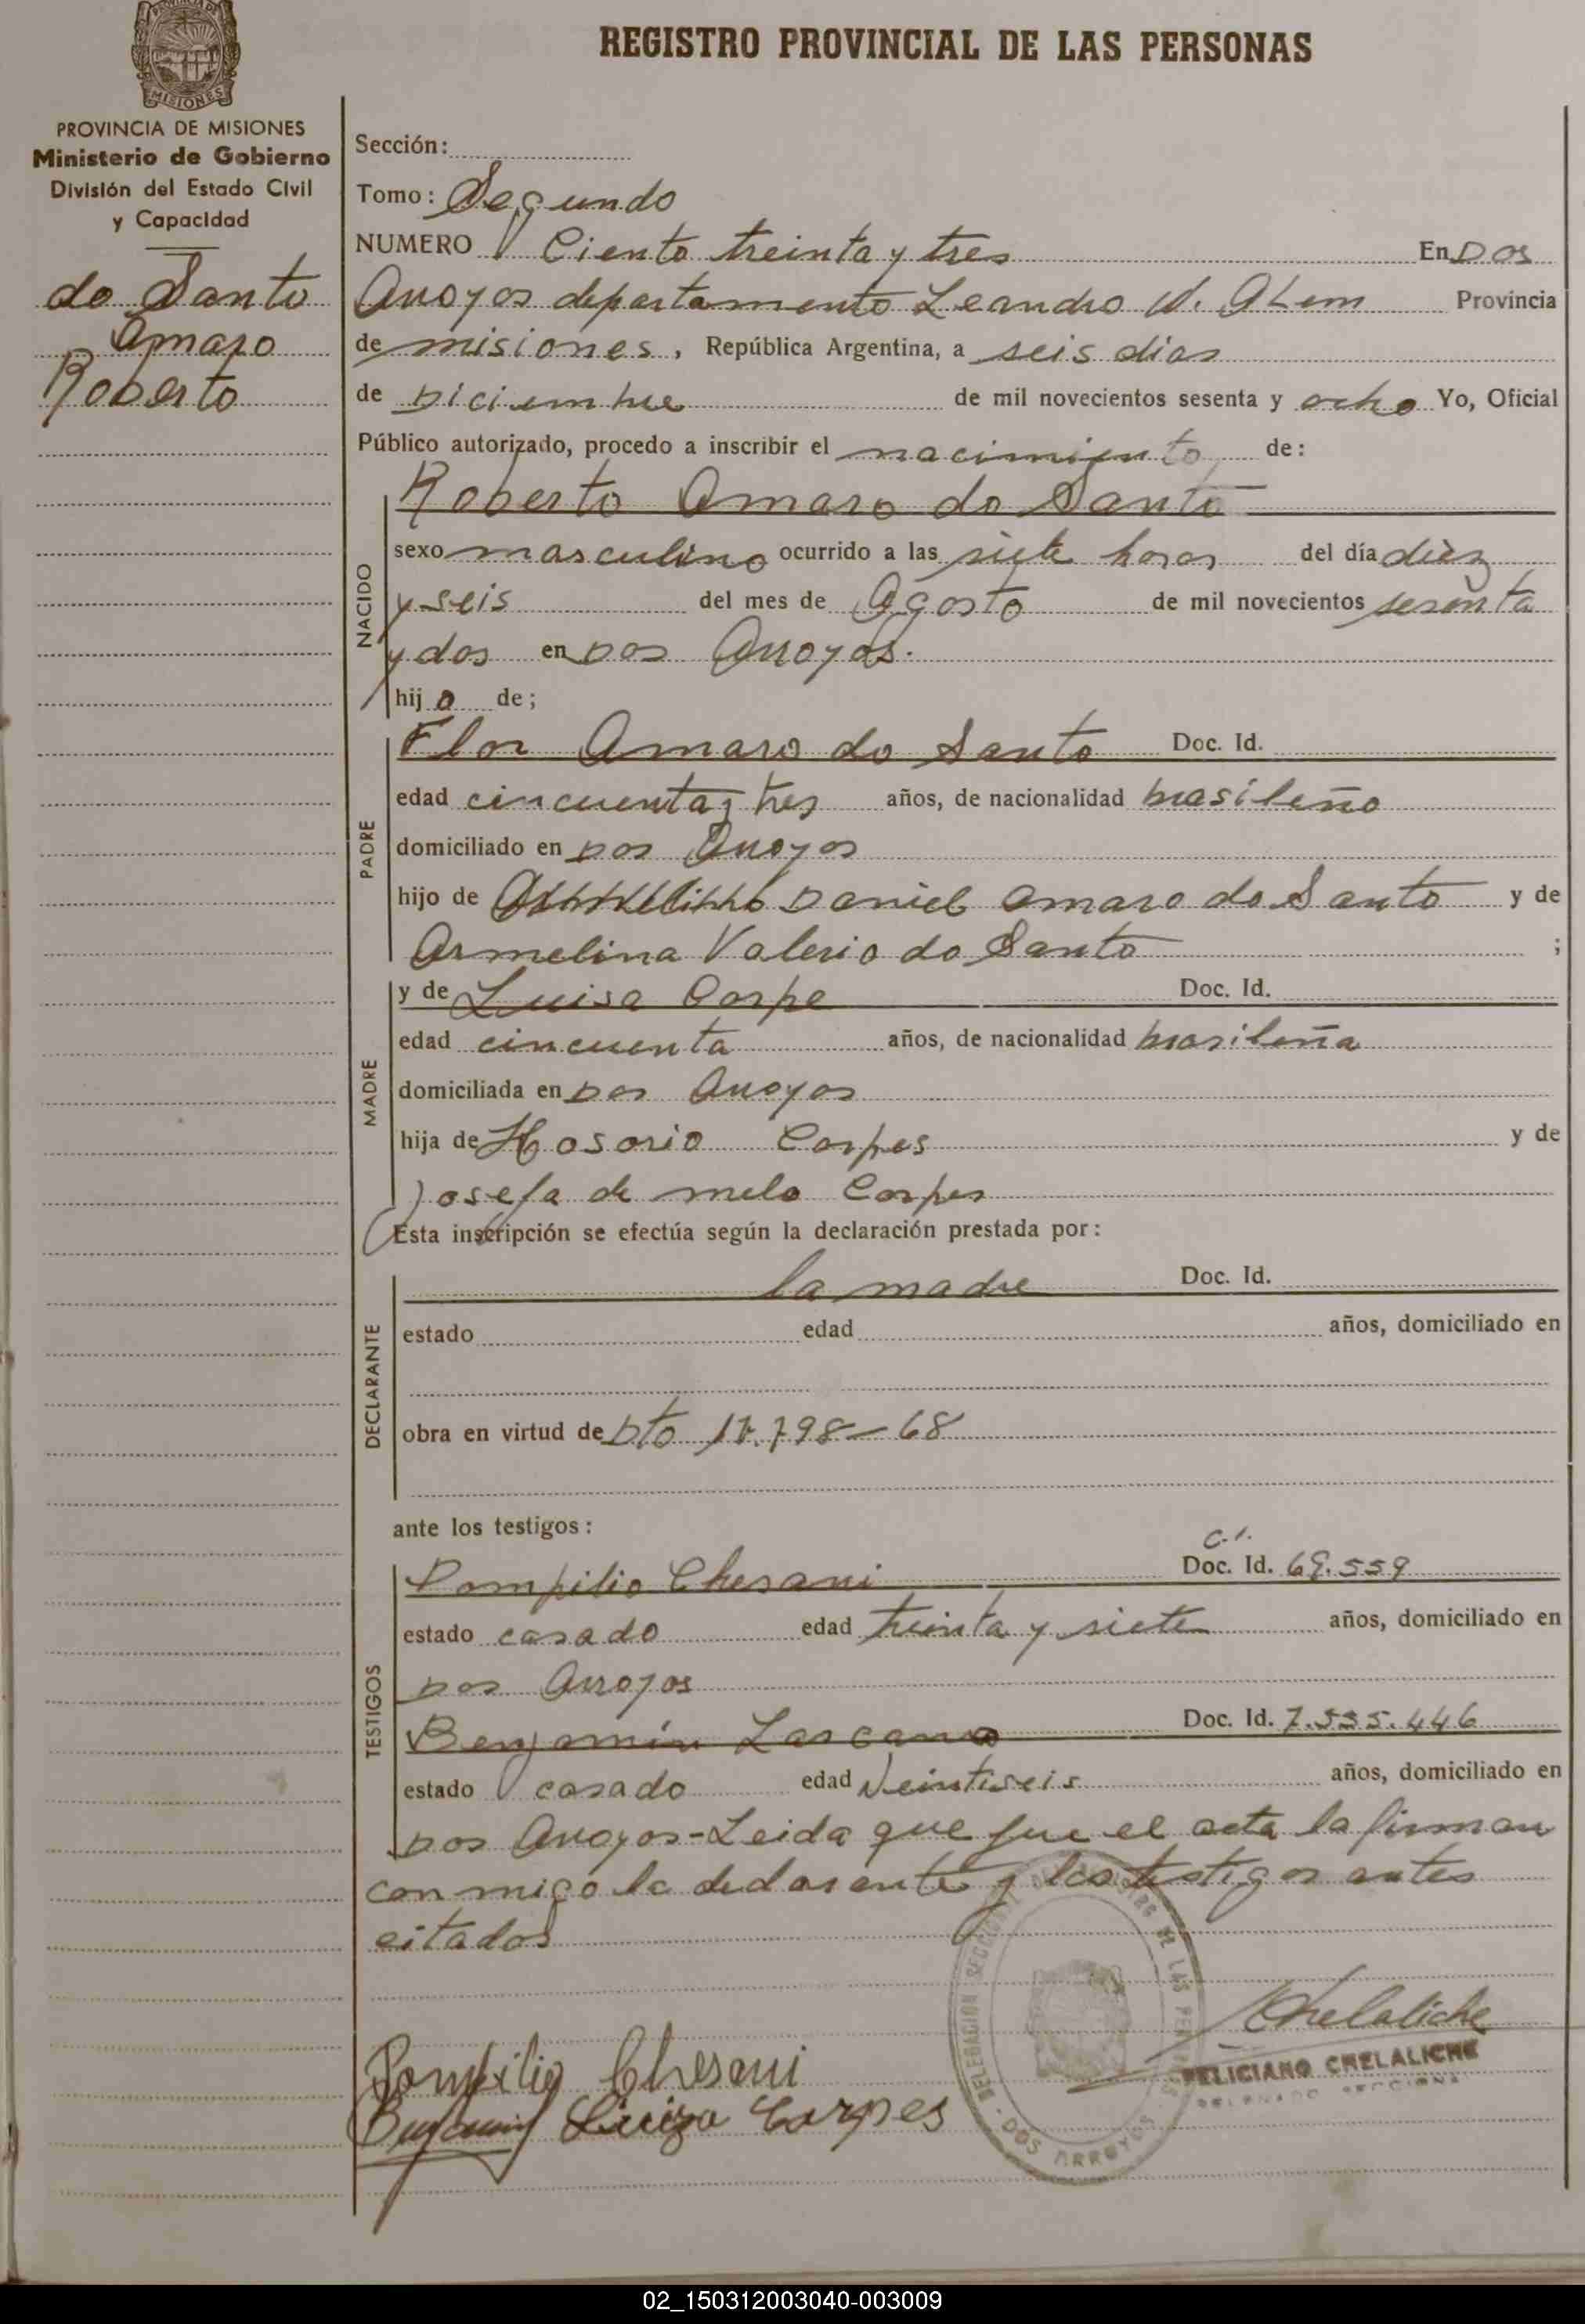 PROVINCIA DE
MISIONES
REGISTRO PROVINCIAL DE LAS PERSONAS
PROVINCIA DE MISIONES
Ministerio de Gobierno
División del Estado Civil
y Capacidad
do Santo
Amaro
Roberto
Sección:
Tomo: Segundo
NUMERO Ciento treinta y tres En Dos
Arroyos departamento Leandro N. ALem Provincia
de misiones, República Argentina, a seis dias
de Diciembre de mil novecientos sesenta y ocho Yo, Oficial
Público autorizado, procedo a inscribir el nacimiento de:
NACIDO
Roberto Amaro do Santo
sexo masculino ocurrido a las siete horas del día diez
y seis del mes de Agosto de mil novecientos sesenta
y dos en Dos Arroyos.
hijo de;
PADRE
Flor Amaro do Santo Doc. Id.
edad cincuenta y tres años, de nacionalidad brasileño
domiciliado en Dos Arroyos
hijo de Daniel Amaro do Santo y de
Armelina Valerio do Santo ;
MADRE
y de Luisa Corpe Doc. Id.
edad cincuenta años, de nacionalidad brasileña
domiciliada en Dos Arroyos
hija de Hosorio Corpes y de
Josefa de melo Corpes
Esta inscripción se efectúa según la declaración prestada por:
DECLARANTE
la madre Doc. Id.
estado edad años, domiciliado en
obra en virtud de Dto 17.798-68
ante los testigos:
TESTIGOS
C.I.
Pompilio Chesani Doc. Id. 69.559
estado casado edad treinta y siete años, domiciliado en
Dos Arroyos
Benjamín Lascano Doc. Id. 7.535.446
estado casado edad Veintiseis años, domiciliado en
Dos Arroyos-Leida que fue el acta la firman
conmigo la declarante y los testigos antes
citados
Chelaliche
FELICIANO CHELALICHE
Pompilio Chesani
Luiza Corpes
DELEGACION SECCIONAL DE LAS PERSONAS
DOS ARROYOS
02_150312003040-003009